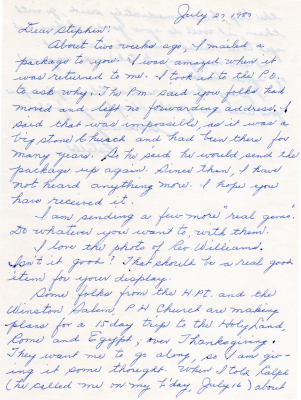 July 27, 1987
Dear Stephen:
About two weeks ago, I mailed a
package to you. I was amazed when it
was returned to me. I took it to the P.O.
to ask why. The P.M. said you folks had
moved and left no forwarding address. I
said that was impossible, as it was a
big stone church and had been there for
many years. So he said he would send the
package up again. Since then, I have
not heard anything more. I hope you
have received it.
I am sending a few more "real gems".
Do whatever you want to, with them.
I love the photo of Geo. Williams.
Isn't it good? That should be a real good
item for your display.
Some folks from the H.Pt. and the
Winston Salem, P.H. Church are making
plans for a 15 day trip to the Holy Land,
Rome and Egypt, over Thanksgiving.
They want me to go along, so I am giv-
ing it some thought. When I told Ralph
(he called me on my b'day, July 16) about